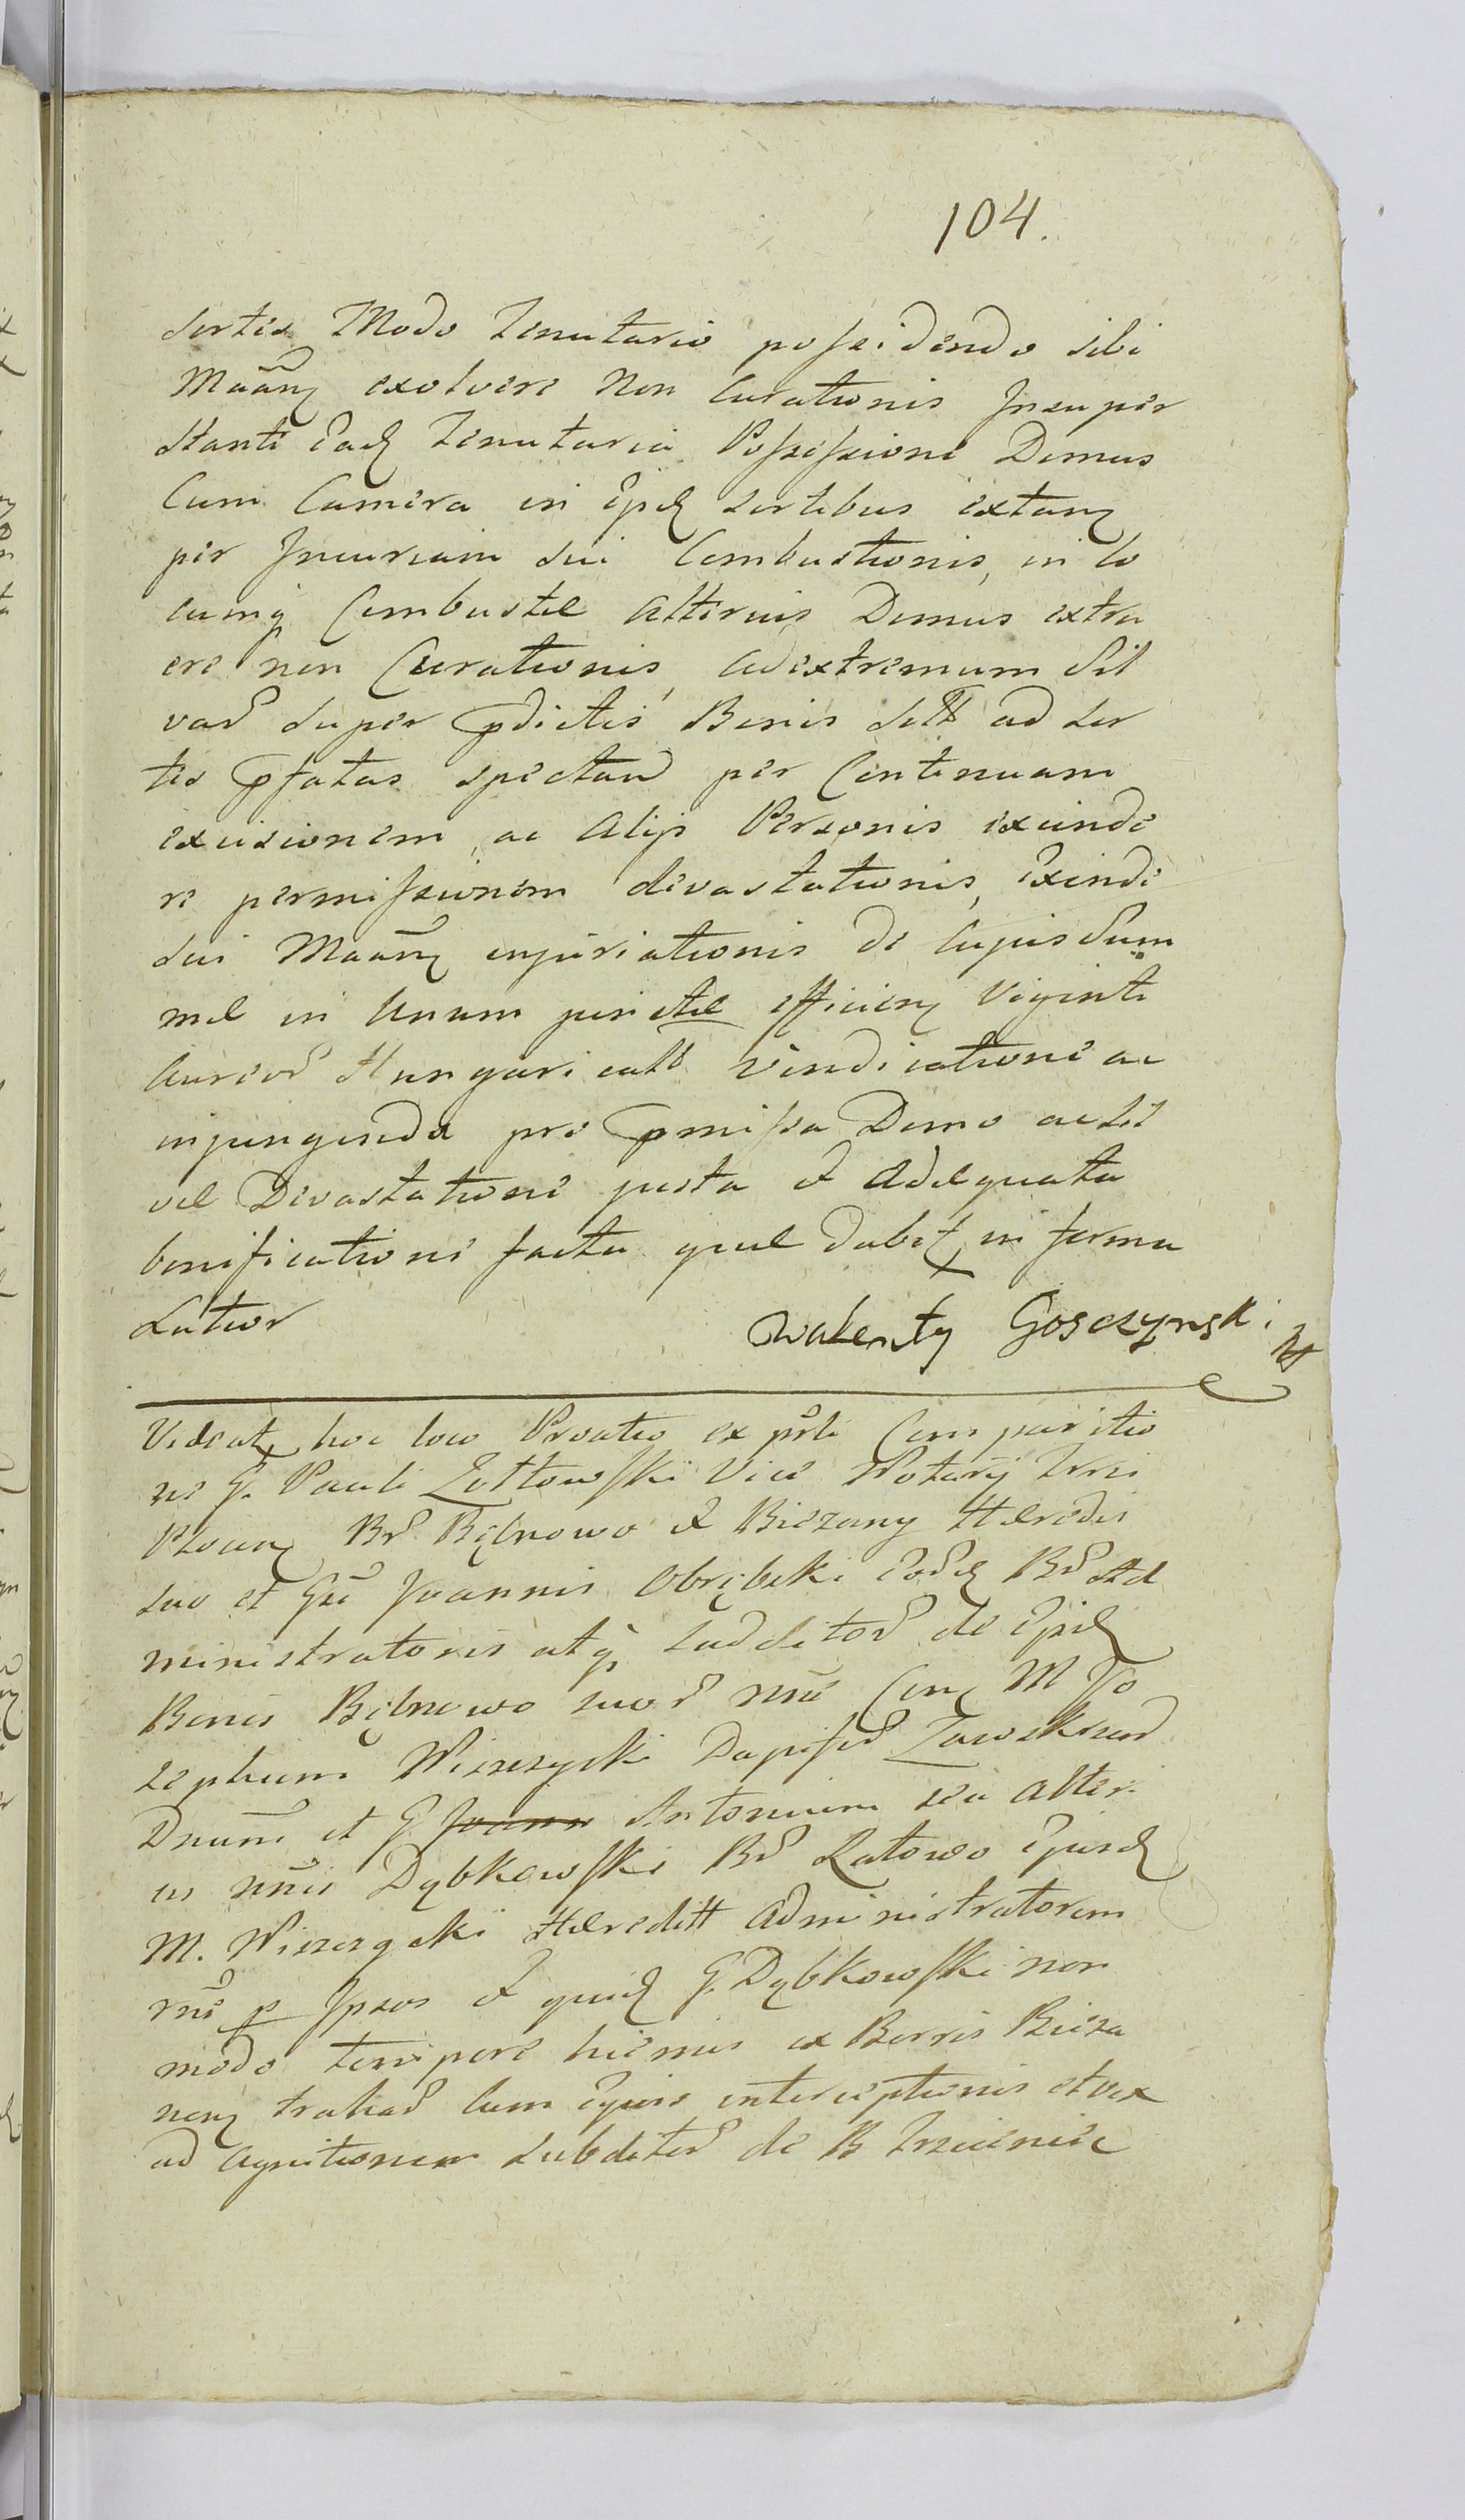 104.
sortes Modo Tenutario possidendo sibi
Maãnz exolvere Non Curationis Insuper
stante eadz Tenutaria Possessione Domus
Cum Camera in ijsdz sortibus extanz
per Incuriam sui Combustionis, in lo
cumqz Combustae alterius Domus extru
ere non Curationis, ad extremum Sil
var super pdictis Bonis seu ad sor
tes pfatas spectan per Continuam
excisionem, ac alijs Personis excinde
re permissionem devastationis, Exinde
sui Maãnz injuriationis de cujus sum
mae in Unum junctae efficienz Viginti
Aureor Hungaricall vindicatione ac
injungenda pro pmissa Domo ac Sil
vae Devastatione justa et adaequata
bonificatione facta quae dabitz in forma
Latior
Walenty Gosczynski
Videatz hoc loco Proatio ex pñti Comparitio
ne G. Pauli Zołtowski Vice Notarij Trri
Plocenz Br Bębnowo et Biezany Haeredis
suo et Gsi Joannis Obrębski eordz Br Ad
ministratoris atqz subditor de ijsdz
Bonis Bębnowo suor nñe Conz M Jo
sephum Wierzycki Dapifer Zawskrzen
Dnum et G. Joann Antonium seu alteri
us nñis Dąbkowski Br Ratowo ejusdz
M. Wierzycki Haereditt Administratorem
rñe p Ipsos et quidz G. Dąbkowski non
modo tempore hiemis ex Bonis Bieza
nenz trahar cum equis interceptionis et vix
ad agnitionem subditor de B Trzcieniec